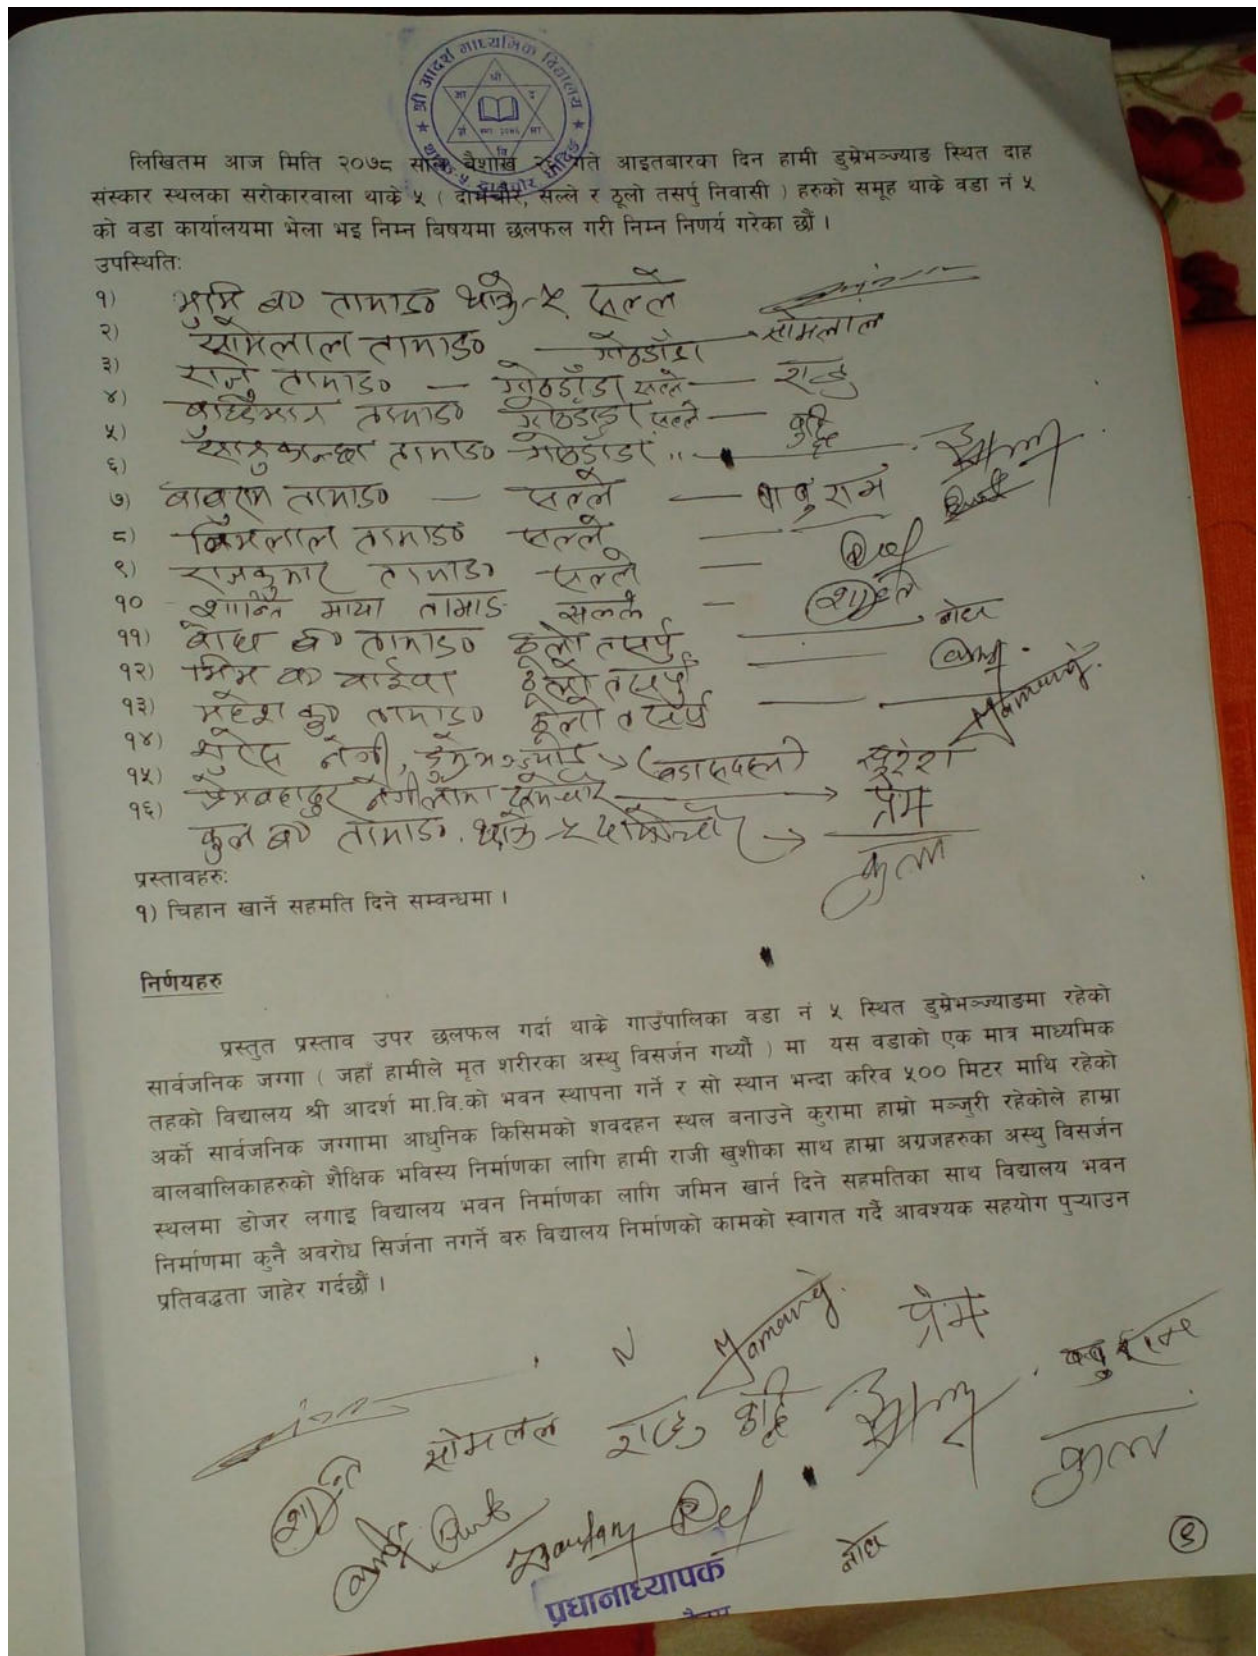 श्री आदर्श माध्यमिक विद्यालय
लिखितम आज मिति २०७८ साल बैशाख २६ गते आइतबारका दिन हामी डुम्रेभञ्ज्याङ स्थित दाह
संस्कार स्थलका सरोकारवाला थाक्रे ५ ( दामचौर, सल्ले र ठूलो तसर्पु निवासी ) हरुको समूह थाक्रे वडा नं ५
को वडा कार्यालयमा भेला भइ निम्न बिषयमा छलफल गरी निम्न निणर्य गरेका छौं ।
उपस्थिति:
१) भुमि ब० तामाङ थाक्रे-५ सल्ले
२) सोमलाल तामाङ — गोठडाँडा सोमलाल
३) राजु तामाङ — गोठडाँडा सल्ले — राजु
४) बुद्धिमान तामाङ गोठडाँडा सल्ले — बुद्धि
५) तामाङ गोठडाँडा ,,
६)
७) बाबुराम तामाङ — सल्ले — बाबुराम
८) बिमलाल तामाङ सल्ले —
९) राजकुमार तामाङ सल्ले —
१० शान्ति माया तामाङ सल्ले — शान्ति
११) बोध ब० तामाङ ठूलो तसर्पु बोध
१२) भिम ब० वाईवा ठूलो तसर्पु
१३) महेश कु० तामाङ ठूलो तसर्पु Tamang
१४) सुरेस नेगी, डुम्रेभञ्ज्याङ (वडा सदस्य) सुरेश
१५) प्रेमबहादुर नेगीलामा दामचौर प्रेम
१६) कुल ब० तामाङ थाक्रे-५ दामचौर कुल
प्रस्तावहरु:
१) चिहान खार्ने सहमति दिने सम्वन्धमा ।
निर्णयहरु
प्रस्तुत प्रस्ताव उपर छलफल गर्दा थाक्रे गाउँपालिका वडा नं ५ स्थित डुम्रेभञ्ज्याङमा रहेको
सार्वजनिक जग्गा ( जहाँ हामीले मृत शरीरका अस्थु विसर्जन गर्थ्यौं ) मा यस वडाको एक मात्र माध्यमिक
तहको विद्यालय श्री आदर्श मा.वि.को भवन स्थापना गर्ने र सो स्थान भन्दा करिव ५०० मिटर माथि रहेको
अर्को सार्वजनिक जग्गामा आधुनिक किसिमको शवदहन स्थल बनाउने कुरामा हाम्रो मञ्जुरी रहेकोले हाम्रा
बालबालिकाहरुको शैक्षिक भविस्य निर्माणका लागि हामी राजी खुशीका साथ हाम्रा अग्रजहरुका अस्थु विसर्जन
स्थलमा डोजर लगाइ विद्यालय भवन निर्माणका लागि जमिन खार्न दिने सहमतिका साथ विद्यालय भवन
निर्माणमा कुनै अवरोध सिर्जना नगर्ने बरु विद्यालय निर्माणको कामको स्वागत गर्दै आवश्यक सहयोग पुऱ्याउन
प्रतिवद्धता जाहेर गर्दछौं ।
Tamang प्रेम
सोमलाल राजु बुद्धि बाबुराम
शान्ति कुल
बोध
९
प्रधानाध्यापक